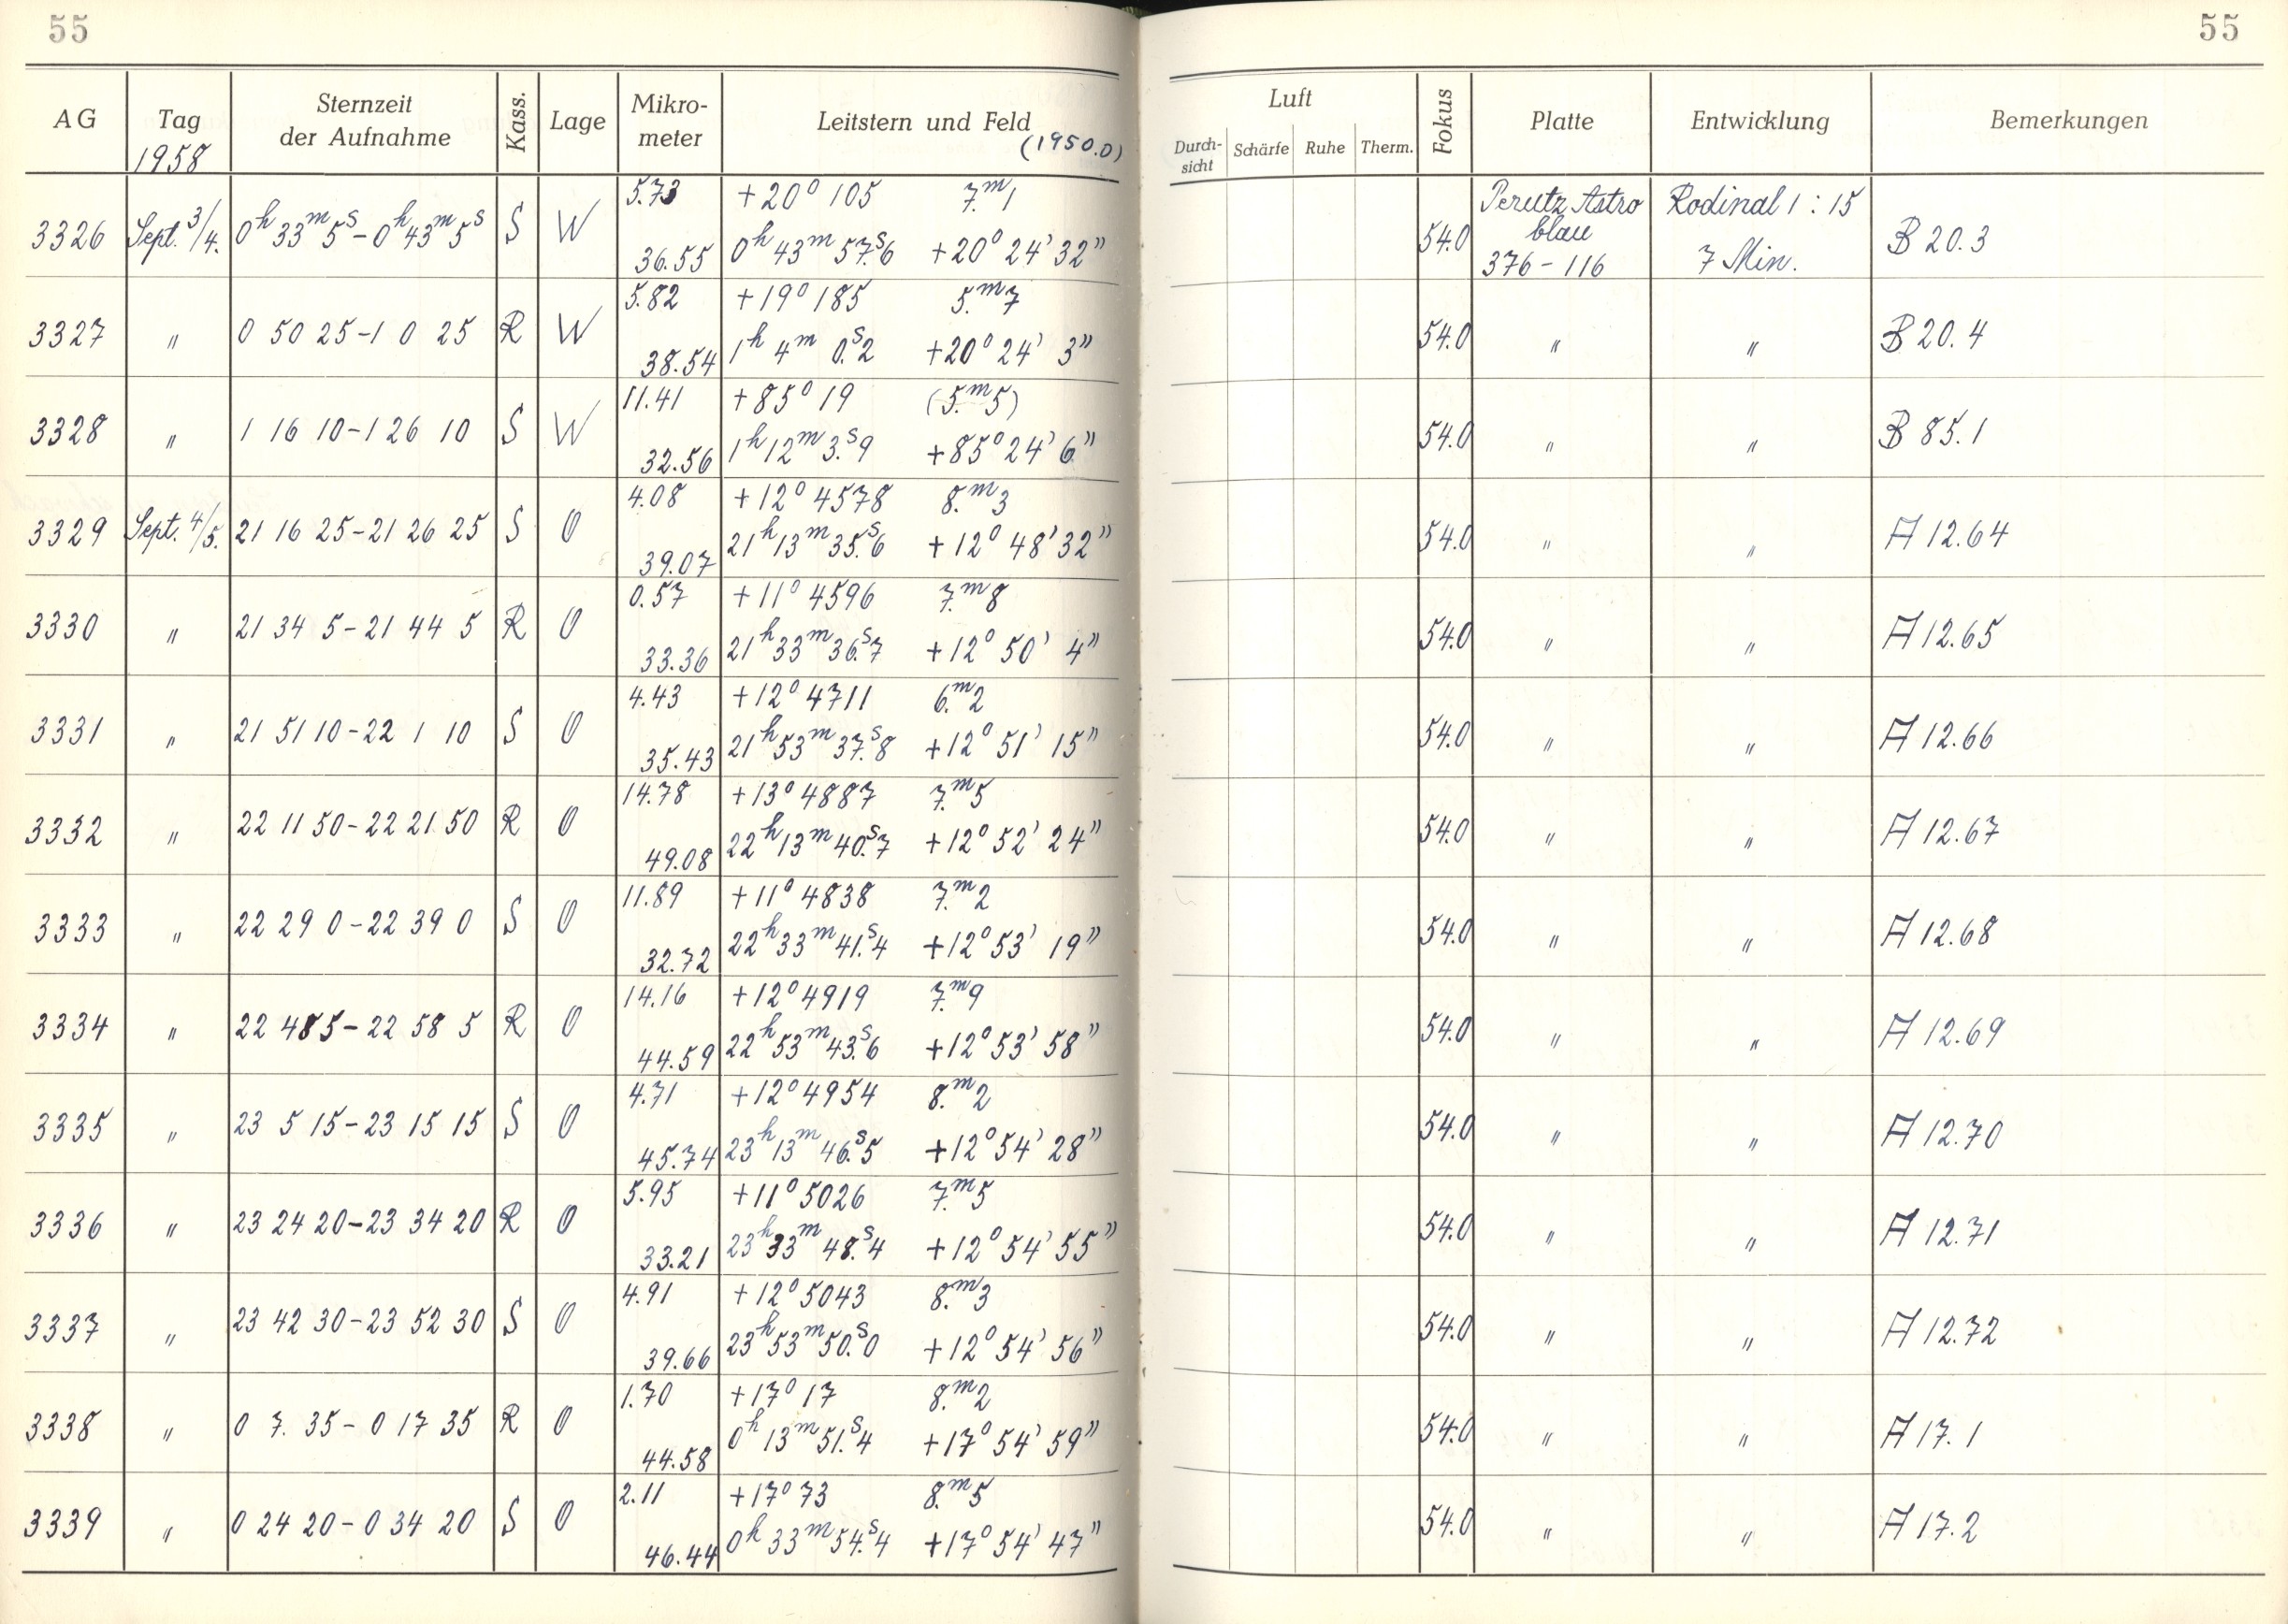 55
55
AG Tag 1958 Sternzeit der Aufnahme Kass. Lage Mikro-meter Leitstern und Feld (1950.0) Luft Durch-sicht Schärfe Ruhe Therm. Fokus Platte Entwicklung Bemerkungen
5.73 +20° 105 7.ᵐ1 Perutz Astro Rodinal 1 : 15
3326 Sept. 3/4. 0ʰ 33ᵐ 5ˢ – 0ʰ 43ᵐ 5ˢ S W 54.0 blau B 20.3
36.55 0ʰ 43ᵐ 57.ˢ6 +20° 24' 32" 376 – 116 7 Min.
5.82 +19° 185 5.ᵐ7
3327 " 0 50 25 – 1 0 25 R W 54.0 " " B 20.4
38.54 1ʰ 4ᵐ 0.ˢ2 +20° 24' 3"
11.41 +85° 19 (5.ᵐ5)
3328 " 1 16 10 – 1 26 10 S W 54.0 " " B 85.1
32.56 1ʰ 12ᵐ 3.ˢ9 +85° 24' 6"
4.08 +12° 4578 8.ᵐ3
3329 Sept. 4/5. 21 16 25 – 21 26 25 S O 54.0 " " A 12.64
39.07 21ʰ 13ᵐ 35.ˢ6 +12° 48' 32"
0.57 +11° 4596 7.ᵐ8
3330 " 21 34 5 – 21 44 5 R O 54.0 " " A 12.65
33.36 21ʰ 33ᵐ 36.ˢ7 +12° 50' 4"
4.43 +12° 4711 6.ᵐ2
3331 " 21 51 10 – 22 1 10 S O 54.0 " " A 12.66
35.43 21ʰ 53ᵐ 37.ˢ8 +12° 51' 15"
14.78 +13° 4887 7.ᵐ5
3332 " 22 11 50 – 22 21 50 R O 54.0 " " A 12.67
49.08 22ʰ 13ᵐ 40.ˢ7 +12° 52' 24"
11.89 +11° 4838 7.ᵐ2
3333 " 22 29 0 – 22 39 0 S O 54.0 " " A 12.68
32.72 22ʰ 33ᵐ 41.ˢ4 +12° 53' 19"
14.16 +12° 4919 7.ᵐ9
3334 " 22 48 5 – 22 58 5 R O 54.0 " " A 12.69
44.59 22ʰ 53ᵐ 43.ˢ6 +12° 53' 58"
4.71 +12° 4954 8.ᵐ2
3335 " 23 5 15 – 23 15 15 S O 54.0 " " A 12.70
45.74 23ʰ 13ᵐ 46.ˢ5 +12° 54' 28"
5.95 +11° 5026 7.ᵐ5
3336 " 23 24 20 – 23 34 20 R O 54.0 " " A 12.71
33.21 23ʰ 33ᵐ 48.ˢ4 +12° 54' 55"
4.91 +12° 5043 8.ᵐ3
3337 " 23 42 30 – 23 52 30 S O 54.0 " " A 12.72
39.66 23ʰ 53ᵐ 50.ˢ0 +12° 54' 56"
1.70 +17° 17 8.ᵐ2
3338 " 0 7. 35 – 0 17 35 R O 54.0 " " A 17.1
44.58 0ʰ 13ᵐ 51.ˢ4 +17° 54' 59"
2.11 +17° 73 8.ᵐ5
3339 " 0 24 20 – 0 34 20 S O 54.0 " " A 17.2
46.44 0ʰ 33ᵐ 54.ˢ4 +17° 54' 47"